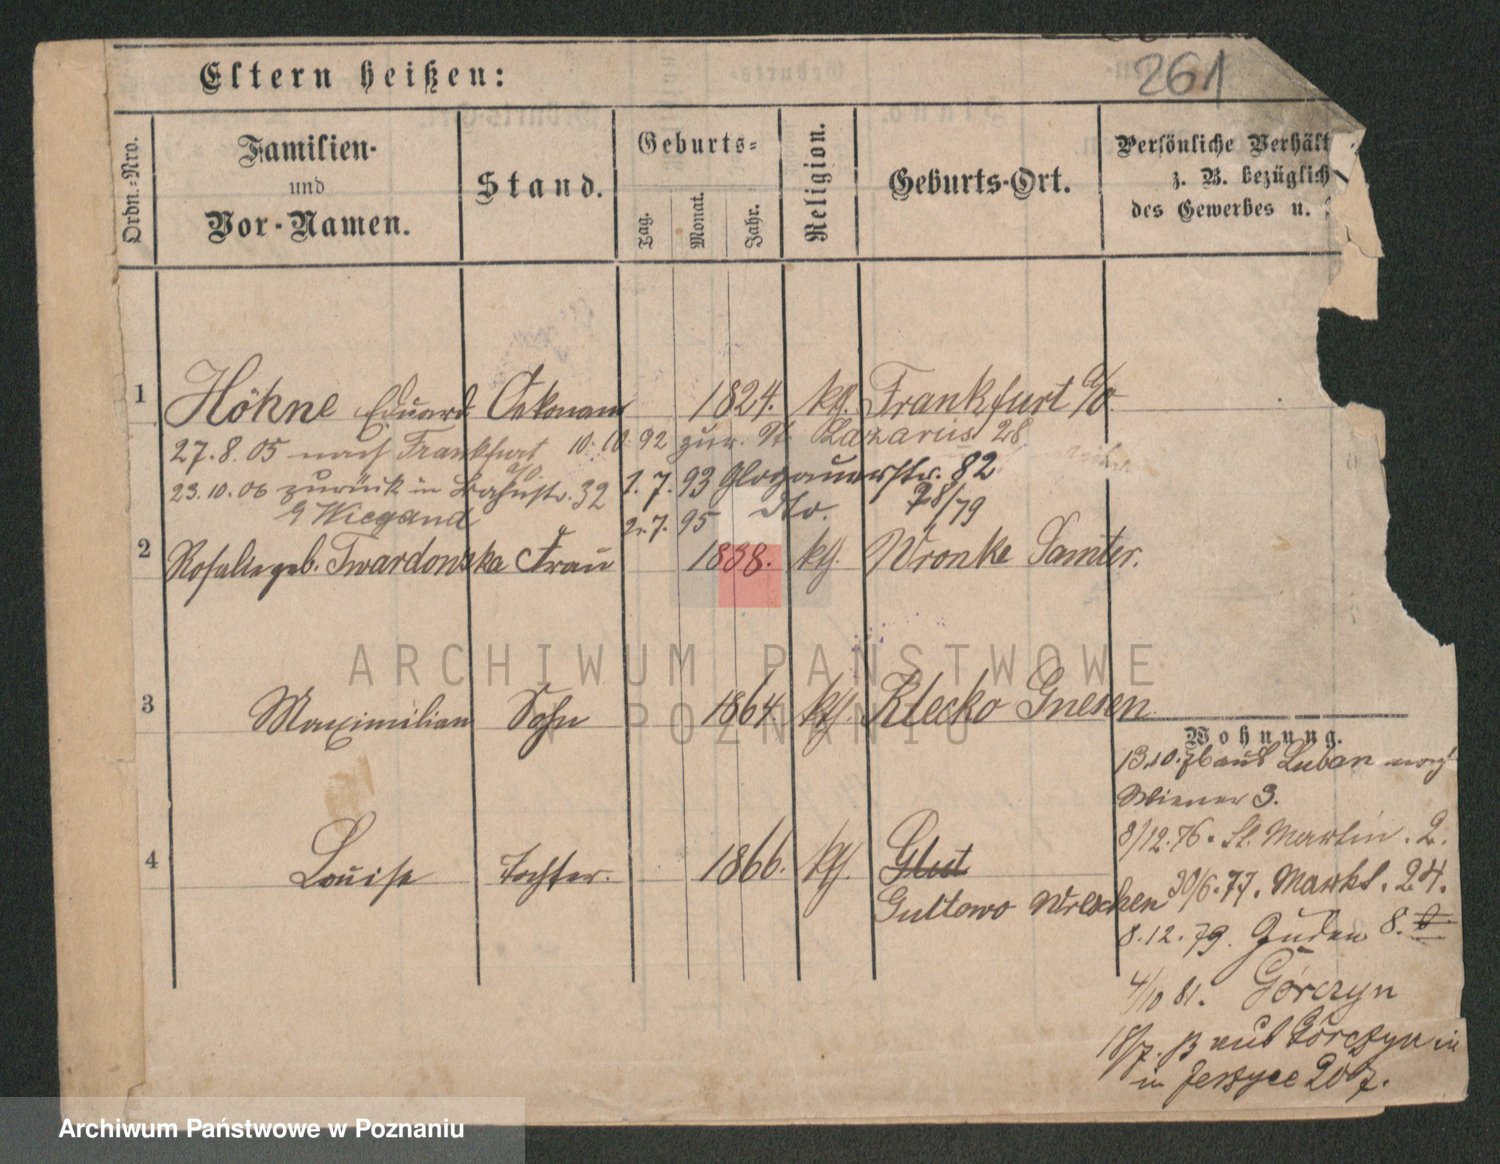 261
Eltern heißen:
Ordn.-Nro.
Familien-
und
Vor-Namen.
Stand.
Geburts-
Tag.
Monat.
Jahr.
Religion.
Geburts-Ort.
Persönliche Verhält
z. B. bezüglich
des Gewerbes u.
1 Höhne Eduard Oekonom 1824. kth. Frankfurt a/O.
27.8.05 nach Frankfurt a/O. 10. 10. 92 zur. St. Lazarus 28
23.10.06 zurück in Bahnstr. 32 1. 7. 93 Glogauerstr. 82
Wiegand 2. 7. 95 dto. 78/79
2 Rosalie geb. Twardowska Frau 1838. kth. Wronke Samter.
3 Maximilian Sohn 1864. kth. Klecko Gnesen
Wohnung.
13.10.76 aus Luban
Wiener 3.
8/12.76. St. Martin. 2.
4 Louise Tochter. 1866. kth. Glut
Gultowo Wreschen
30/6.77. Markt. 24.
8.12.79. Guden 8.
4/10 81. Górczyn
18/7. aus Górczyn in
in Jerzyce 207.
ARCHIWUM PAŃSTWOWE
W POZNANIU
Archiwum Państwowe w Poznaniu